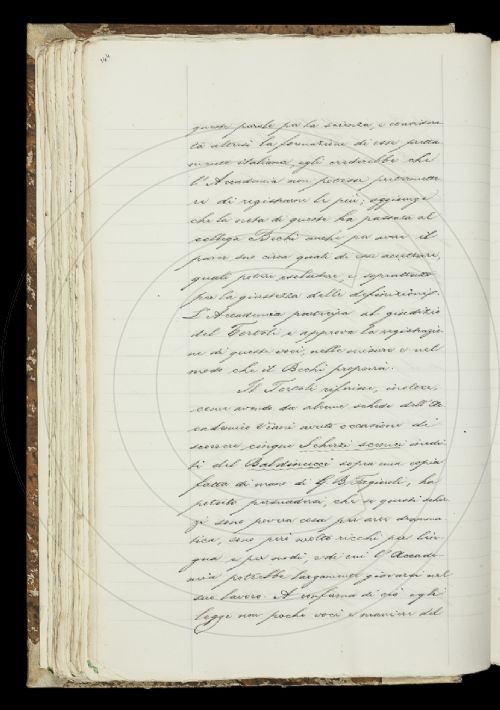 queste parole per la scienza, e considera
ta altresì la formazione di esse pretta
mente italiana, egli crederebbe che
l'Accademia non potesse pretermette
re di registrarne le più; aggiunge
che la nota di queste ha passata al
collega Bechi anche per avere il
parer suo circa quali di esse accettare,
quali potere escludere e soprattutto
per la giustezza delle definizioni.
L'Accademia partecipa al giudizio
del Tortoli e approva la registrazio
ne di queste voci, nella misura e nel
modo che il Bechi proporrà.
Il Tortoli riferisce, inoltre,
come avendo da alcune schede dell'Ac
cademico Viani avuto occasione di
scorrere, cinque Scherzi scenici inedi
ti del Baldinucci sopra una copia
fatta di mano di G. B. Fagiuoli, ha
potuto persuadersi, che se questi scher
zi sono povera cosa per arte dramma
tica, sono però molto ricchi per lin
gua e per modi, e di cui l'Accade
mia potrebbe largamente giovarsi nel
suo lavoro. A conferma di ciò egli
legge non poche voci e maniere del